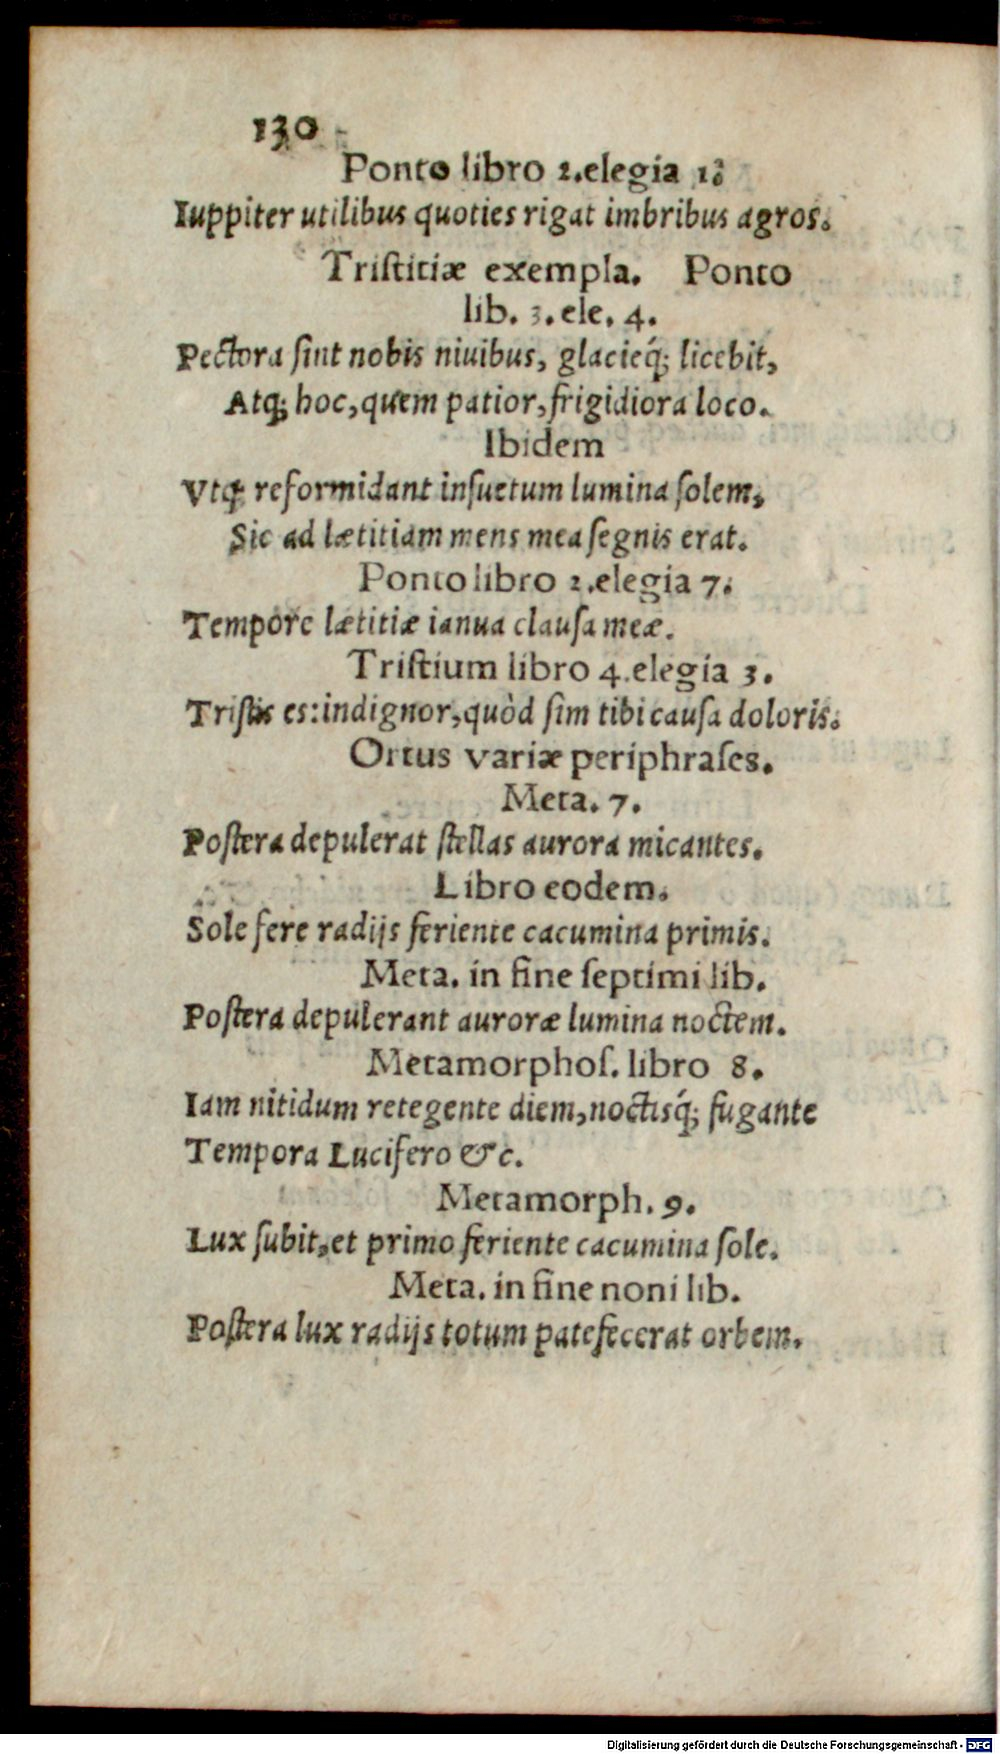 130
Ponto libro 2.elegia 1.
Iuppiter utilibus quoties rigat imbribus agros.
Tristitiæ exempla. Ponto
lib. 3. ele. 4.
Pectora sint nobis niuibus, glacieq́; licebit,
Atq; hoc, quem patior, frigidiora loco.
Ibidem
Vtq; reformidant insuetum lumina solem,
Sic ad lætitiam mens mea segnis erat.
Ponto libro 2.elegia 7.
Tempore lætitiæ ianua clausa meæ.
Tristium libro 4.elegia 3.
Tristis es: indignor, quòd sim tibi causa doloris.
Ortus variæ periphrases.
Meta. 7.
Postera depulerat stellas aurora micantes.
Libro eodem.
Sole fere radijs feriente cacumina primis.
Meta. in fine septimi lib.
Postera depulerant auroræ lumina noctem.
Metamorphos. libro 8.
Iam nitidum retegente diem, noctisq́; fugante
Tempora Lucifero &c.
Metamorph. 9.
Lux subit, et primo feriente cacumina sole.
Meta. in fine noni lib.
Postera lux radijs totum patefecerat orbem.
Digitalisierung gefördert durch die Deutsche Forschungsgemeinschaft - DFG